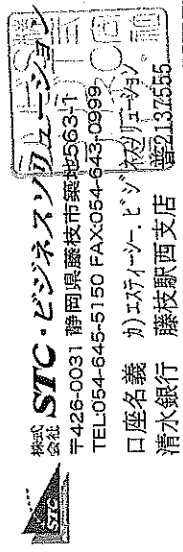 STC
株式会社 STC・ビジネスソリューション
〒426-0031 静岡県藤枝市築地563-1
TEL:054-645-5150 FAX:054-643-0999
口座名義 カ)エスティーシー．ビジネスソリューション
清水銀行 藤枝駅西支店 普2137555